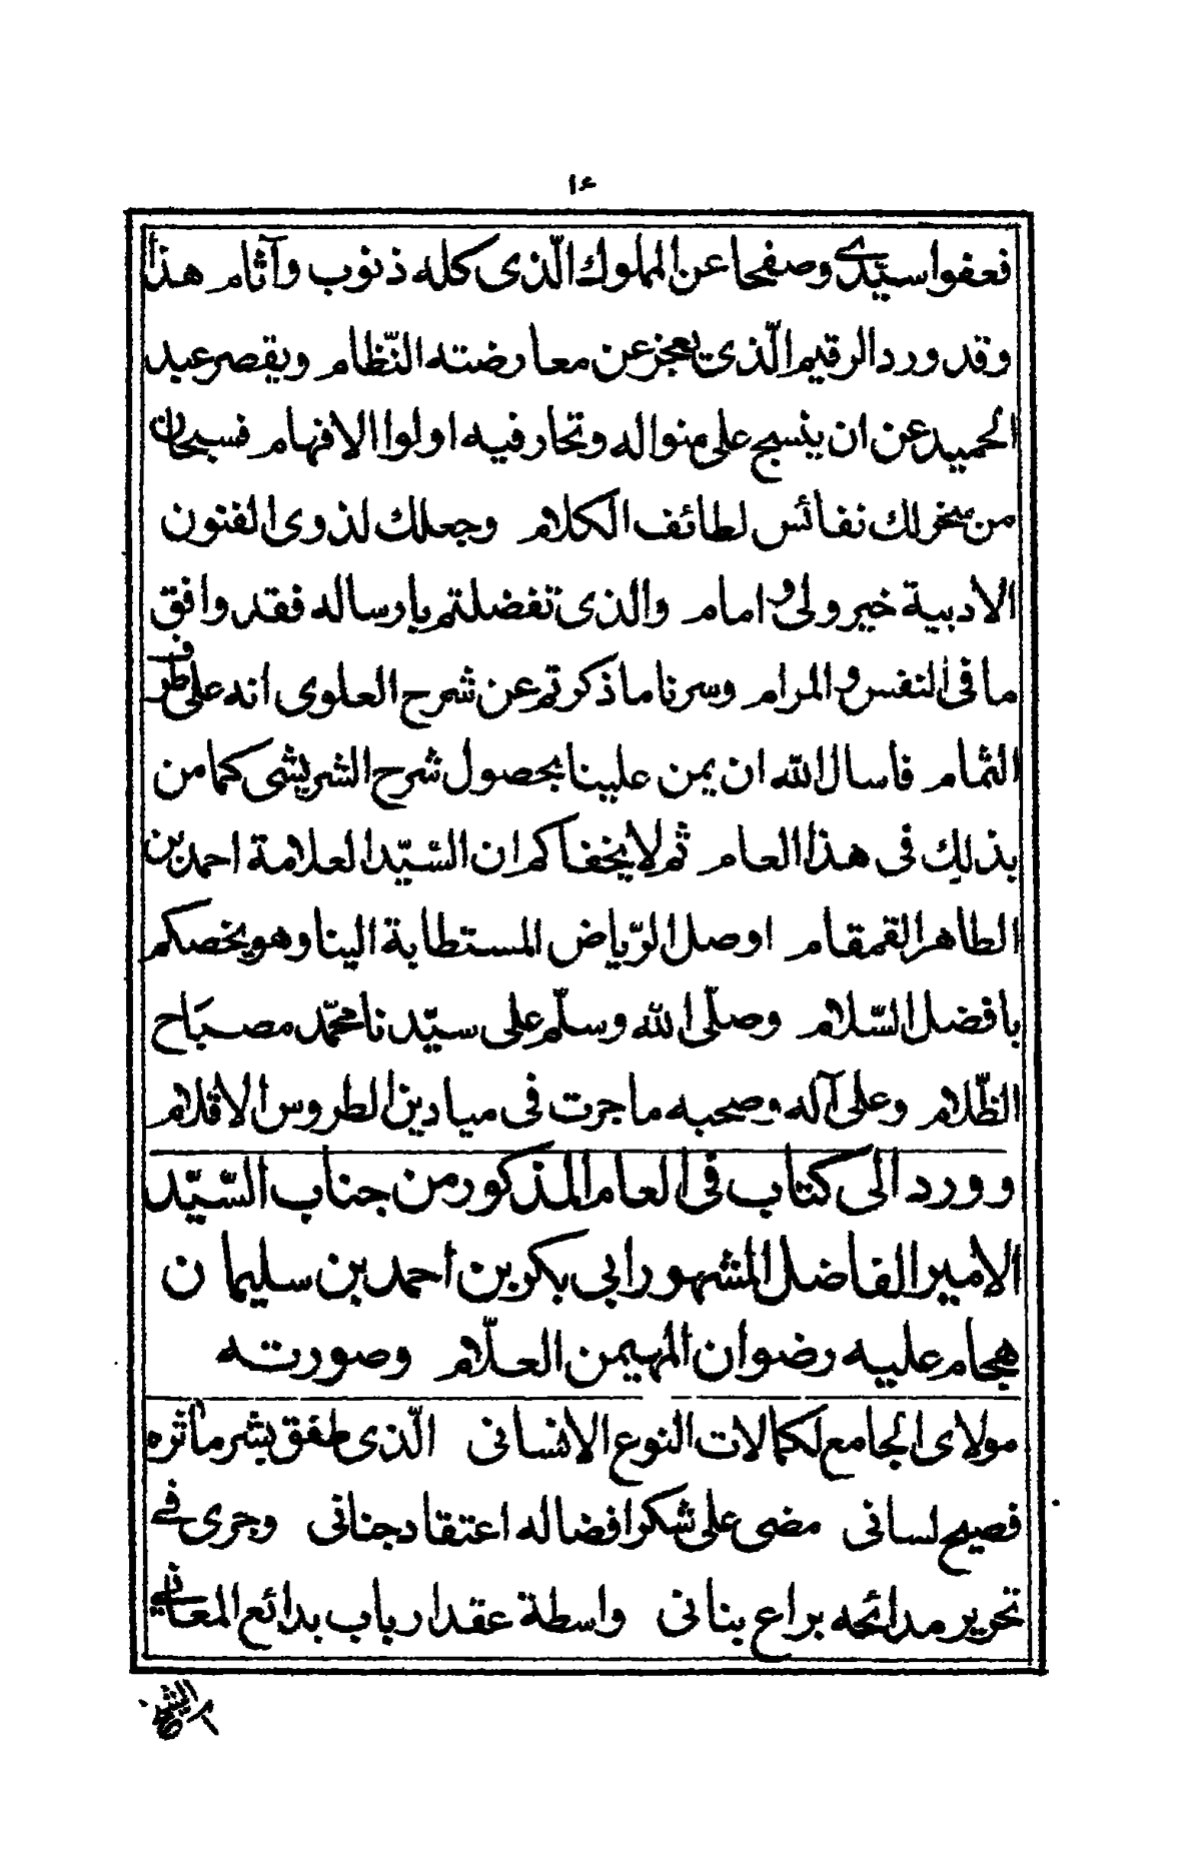 ١٤
فعفوا سيّدى وصفحا عن المملوك الّذى كله ذنوب وآثام هذا
وقد ورد الرقيم الّذى يعجز عن معارضته النّظام ويقصر عبد
الحميد عن ان ينسج على منواله وتحار فيه اولوا الافهام فسبحان
من سخر لك نفائس لطائف الكلام وجعلك لذوى الفنون
الادبية خير ولى وامام والذى تفضلتم بارساله فقد وافق
ما فى النفس والمرام وسرنا ما ذكرتم عن شرح العلوى انه على طرف
الثمام فاسال الله ان يمن علينا بحصول شرح الشريشى كما من
بذلك فى هذا العام ثم لا يخفاكم ان السّيّد العلامة احمد بن
الطاهر القمقام اوصل الرّياض المستطابة الينا وهو يخصكم
بافضل السّلام وصلّى الله وسلّم على سيّدنا محمّد مصباح
الظّلام وعلى آله وصحبه ما جرت فى ميادين الطروس الاقلام
وورد الى كتاب فى العام المذكور من جناب السّيّد
الامير الفاضل المشهور ابى بكر بن احمد بن سليمان
هجام عليه رضوان المهيمن العلّام وصورته
مولاى الجامع لكمالات النوع الانسانى الّذى طفق بشر مآثره
فصيح لسانى مضى على شكر افضاله اعتقاد جنانى وجرى فى
تحرير مدائحه براع بنانى واسطة عقد ارباب بدائع المعانى